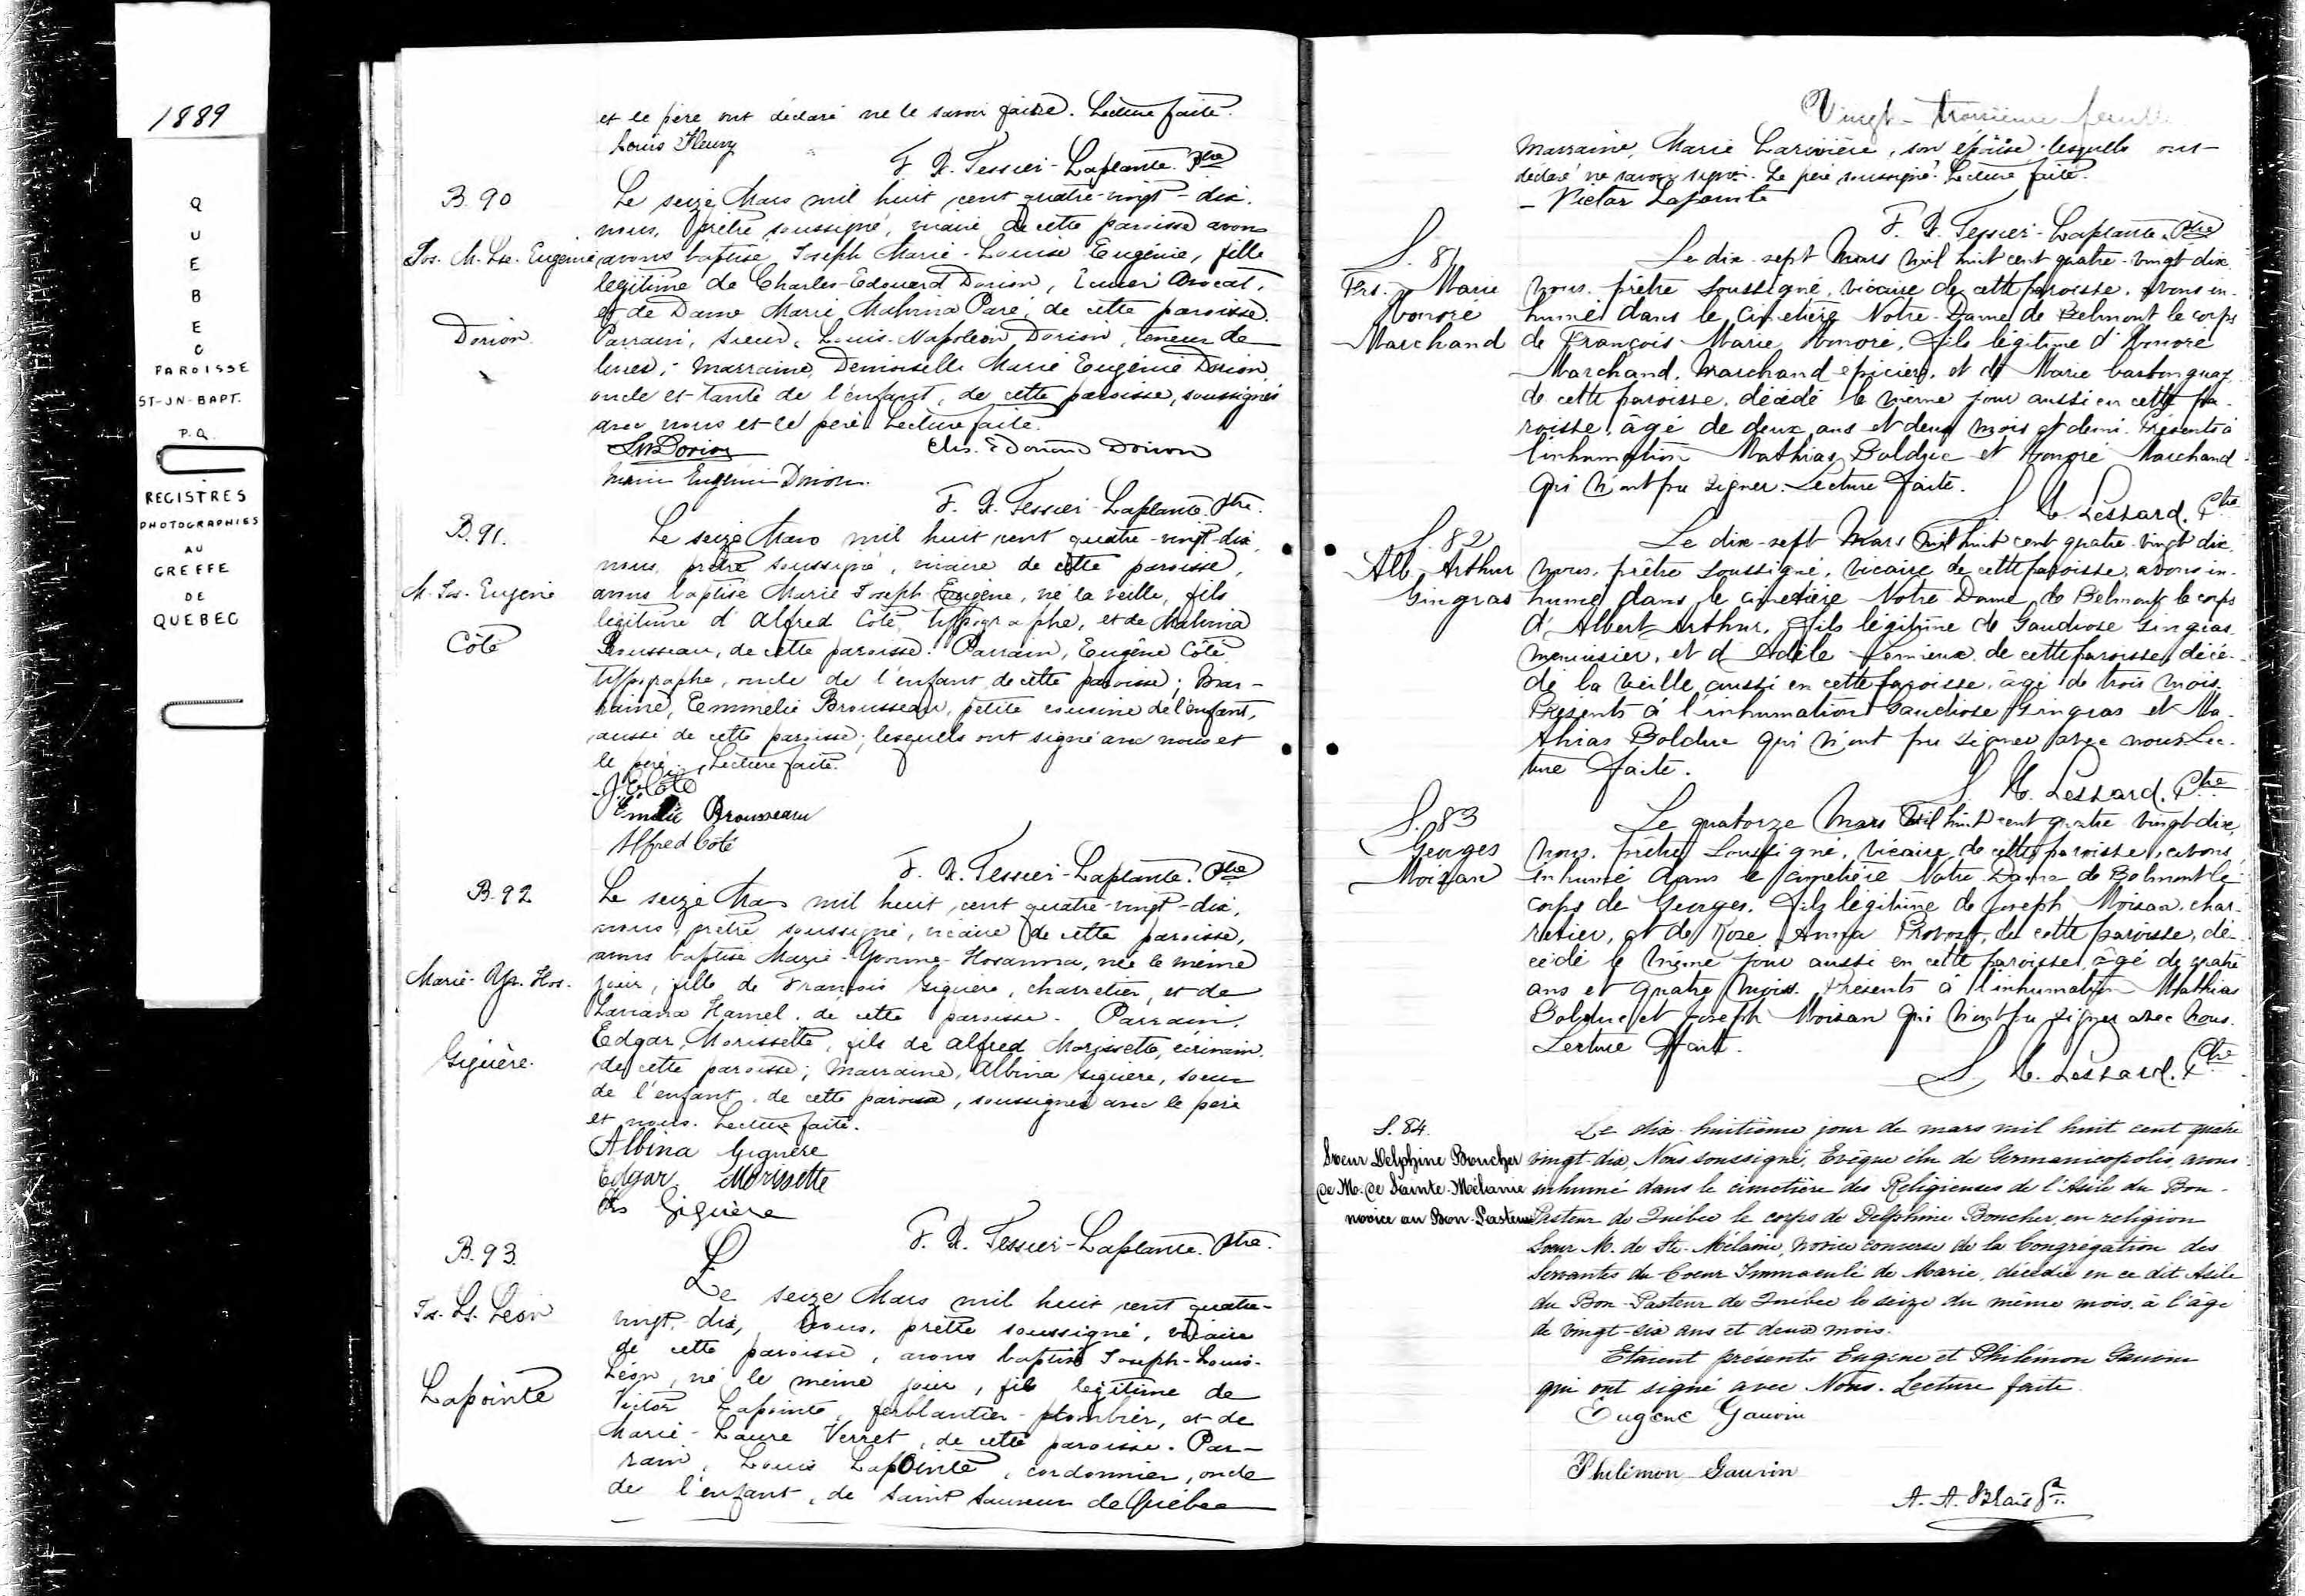 1889
QUEBEC
PAROISSE
ST-JN-BAPT.
P.Q.
REGISTRES
PHOTOGRAPHIES
AU
GREFFE
DE
QUEBEC
et le père ont déclaré ne le savoir faire. Lecture faite.
Louis Fleury
F. X. Tessier-Laplante. Ptre
B. 90
Jos. M. Lse. Eugénie
Dorion.
Le seize Mars mil huit cent quatre-vingt-dix,
nous, prêtre soussigné, vicaire de cette paroisse avons
avons baptisé Joseph Marie-Louise Eugénie, fille
légitime de Charles-Edouard Dorion, Ecuier Avocat,
et de Dame Marie Malvina Paré, de cette paroisse.
Parrain, Sieur Louis-Napoléon Dorion, teneur de
livres; marraine, Demoiselle Marie Eugénie Dorion,
oncle et tante de l'enfant, de cette paroisse, soussignés
avec nous et le père. Lecture faite.
LN Dorion
Chs. Edouard Dorion
Marie Eugénie Dorion.
F. X. Tessier-Laplante. Ptre.
B. 91.
M. Jos. Eugène
Côté
Le seize Mars mil huit cent quatre-vingt-dix,
nous, prêtre soussigné, vicaire de cette paroisse,
avons baptisé Marie Joseph Eugène, né la veille, fils
légitime d'Alfred Côté typographe, et de Malvina
Brousseau, de cette paroisse. Parrain, Eugène Côté,
typographe, oncle de l'enfant de cette paroisse; Mar-
raine, Emmélie Brousseau, petite cousine de l'enfant,
aussi de cette paroisse; lesquels ont signé avec nous et
le père. Lecture faite.
J E Côté
Emélie Brousseau
Alfred Côté
F. X. Tessier-Laplante. Ptre
B. 92
Marie-Yv. Hos.
Giguère.
Le seize Mars mil huit cent quatre-vingt-dix,
nous, prêtre soussigné, vicaire de cette paroisse,
avons baptisé Marie-Yvonne-Hosanna, née le même
jour, fille de François Giguère, charretier, et de
Hamel, de cette paroisse. Parrain,
Edgar Morissette, fils de Alfred Morissette, écrivain,
de cette paroisse; marraine, Albina Giguère, soeur
de l'enfant, de cette paroisse, soussignés avec le père
et nous. Lecture faite.
Albina Giguère
Edgar Morissette
Frs Giguère
F. X. Tessier-Laplante. Ptre.
B. 93.
Jos. Ls. Léon
Lapointe
Le seize Mars mil huit cent quatre-
vingt-dix, nous, prêtre soussigné, vicaire
de cette paroisse, avons baptisé Joseph-Louis-
Léon, né le même jour, fils légitime de
Victor Lapointe, ferblantier-plombier, et de
Marie-Laure Verret, de cette paroisse. Par-
rain, Louis Lapointe, cordonnier, oncle
de l'enfant, de Saint Sauveur de Québec
Vingt-troisième feuille
Marraine, Marie Larivière, son épouse lesquels ont
déclaré ne savoir signer. Le père soussigné. Lecture faite.
- Victor Lapointe
F. X. Tessier-Laplante. Ptre
S. 81
Frs. Marie
Honoré
Marchand
Le dix-sept Mars mil huit cent quatre-vingt dix,
nous, prêtre soussigné, vicaire de cette paroisse, avons in-
humé dans le cimetière Notre-Dame de Belmont le corps
de François-Marie Honoré, fils légitime d'Honoré
Marchand, marchand épicier, et de Marie
de cette paroisse, décédé le même jour aussi en cette pa-
roisse, âgé de deux ans et deux mois et demi. Présents à
l'inhumation Mathias Bolduc et Honoré Marchand
qui n'ont pu signer. Lecture faite.
S. C. Lessard. Ptre
S. 82
Alb. Arthur
Gingras
Le dix-sept Mars mil huit cent quatre-vingt dix,
nous, prêtre soussigné, vicaire de cette paroisse, avons in-
humé dans le cimetière Notre Dame de Belmont le corps
d'Albert-Arthur, fils légitime de Gaudiose Gingras
menuisier, et d'Adèle Lemieux de cette paroisse, décé-
dé la veille aussi en cette paroisse, âgé de trois mois.
Présents à l'inhumation Gaudiose Gingras et Ma-
thias Bolduc qui n'ont pu signer avec nous. Lec-
ture faite.
S. C. Lessard. Ptre
S. 83
Georges
Moisan
Le quatorze Mars mil huit cent quatre vingt dix,
nous, prêtre soussigné, vicaire de cette paroisse, avons
inhumé dans le cimetière Notre-Dame de Belmont le
corps de Georges, fils légitime de Joseph Moisan, char-
retier, et de Rose Anna Provost, de cette paroisse, dé-
cédé le même jour aussi en cette paroisse, âgé de quatre
ans et quatre mois. Présents à l'inhumation Mathias
Bolduc et Joseph Moisan qui n'ont pu signer avec nous.
Lecture faite.
S. C. Lessard. Ptre
S. 84.
Soeur Delphine Boucher
de M. de Sainte-Mélanie
novice au Bon-Pasteur
Le dix-huitième jour de mars mil huit cent quatre
vingt-dix, Nous soussigné, Evêque élu de Germanicopolis, avons
inhumé dans le cimetière des Religieuses de l'Asile du Bon-
Pasteur de Québec le corps de Delphine Boucher, en religion
Soeur M. de Ste-Mélanie, novice converse de la Congrégation des
Servantes du Coeur Immaculé de Marie, décédée en ce dit Asile
du Bon-Pasteur de Québec le seize du même mois, à l'âge
de vingt-six ans et deux mois.
Etaient présents Eugène et Philémon Gauvin
qui ont signé avec Nous. Lecture faite.
Eugène Gauvin
Philémon Gauvin
A. A. Blais